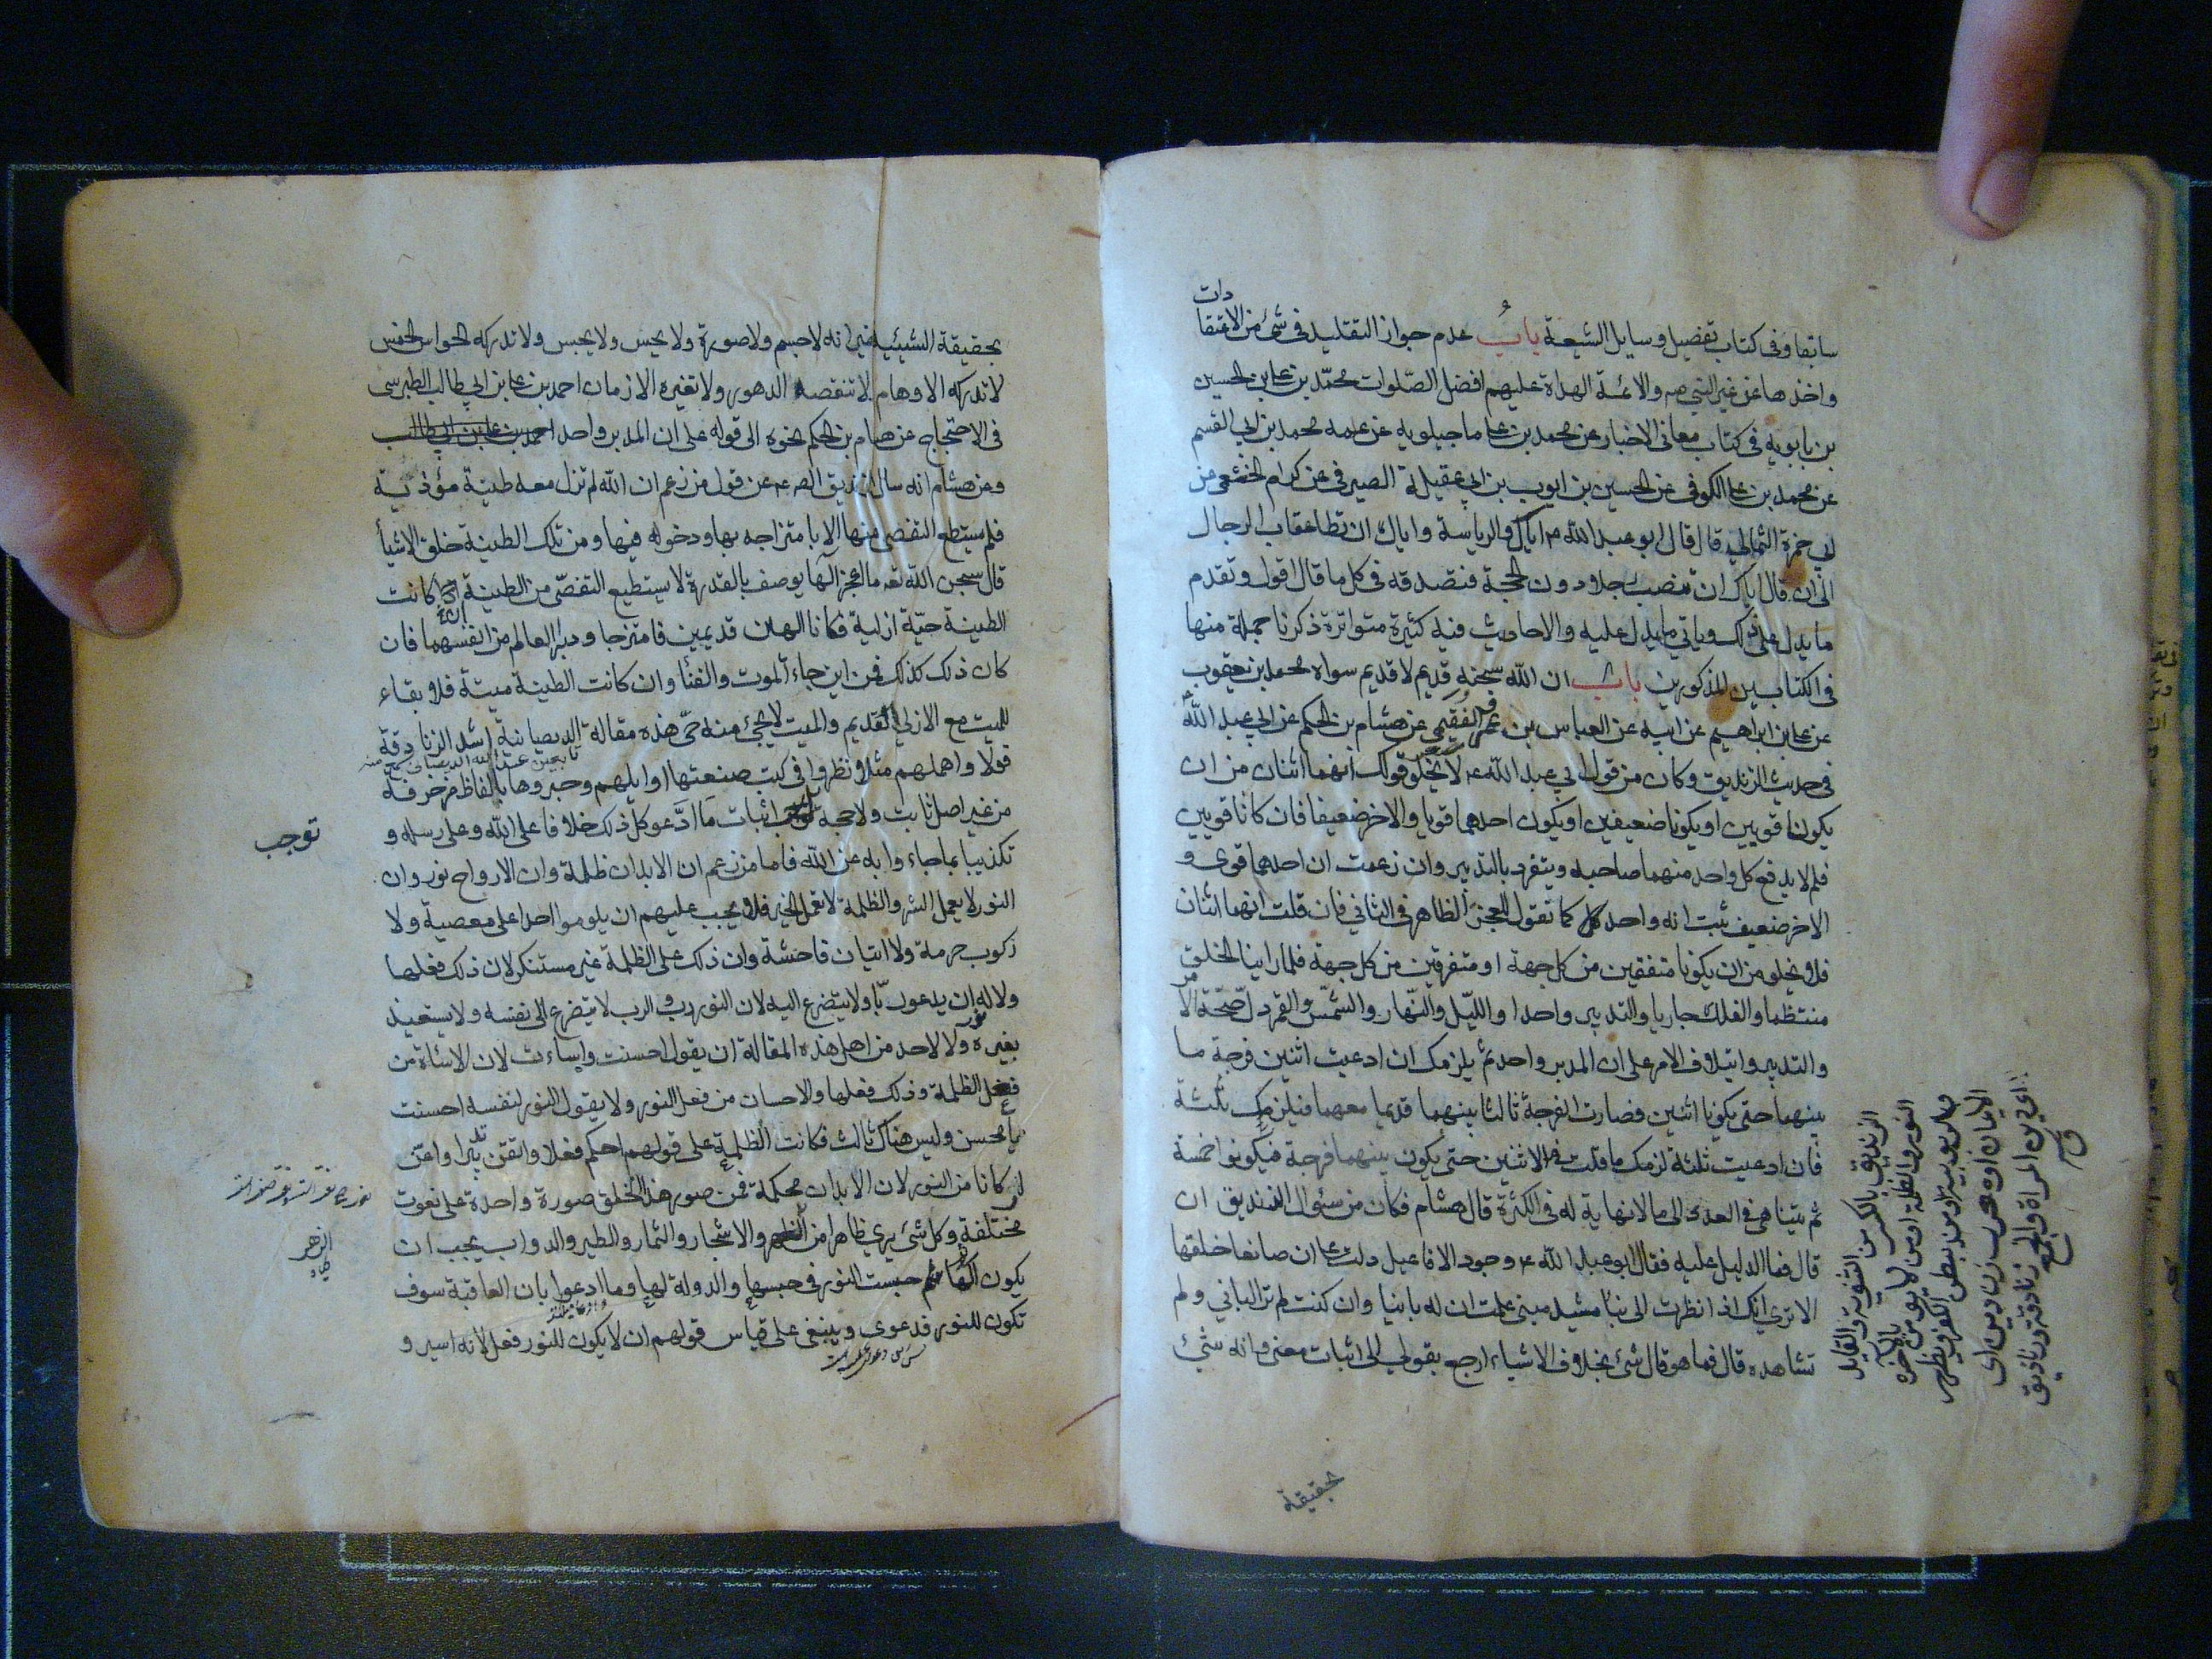 سابقا وفى كتاب تفصيل وسايل الشيعة باب عدم جواز التقليد فى شئ من الاعتقا
دات
واخذها عن غير النبي صه والائمة الهداة عليهم افضل الصلوات محمد بن على بن الحسين
بن بابويه فى كتاب معانى الاخبار عن محمد بن على ماجيلويه عن عمه محمد بن ابي القسم
عن محمد بن على الكوفى عن الحسين بن ايوب بن ابي عقيلة الصيرفى عن كرام الخثعمي عن
ابي حمزة الثمالي قال قال ابو عبد الله ع اياك والرياسة واياك ان تطا اعقاب الرجال
الى ان قال اياك ان تنصب رجلا دون الحجة فتصدقه فى كل ما قال اقول وتقدم
ما يدل على ذلك وياتي ما يدل عليه والاحاديث فيه كثيرة متواترة ذكرنا جملة منها
فى الكتابين المذكورين باب ان الله سبحنه قديم لا قديم سواه محمد بن يعقوب
عن على بن ابراهيم عن ابيه عن العباس بن عمرو الفقيمي عن هشام بن الحكم عن ابي عبد الله ع
فى حديث الزنديق وكان من قول ابي عبد الله ع لا يخلو قولك انهما اثنان من ان
يكونا قويين او يكونا ضعيفين او يكون احدهما قويا والاخر ضعيفا فان كانا قويين
فلم لا يدفع كل واحد منهما صاحبه ويتفرد بالتدبير وان زعمت ان احدهما قوى و
الاخر ضعيف ثبت انه واحد كما تقول للعجز الظاهر فى الثاني فان قلت انهما اثنان
فلا يخلو من ان يكونا متفقين من كل جهة او متفرقين من كل جهة فلما راينا الخلق
منتظما والفلك جاريا والتدبير واحدا والليل والنهار والشمس والقمر دل صحة الامر
والتدبير وايتلاف الامر على ان المدبر واحد ثم يلزمك ان ادعيت اثنين فرجة ما
بينهما حتى يكونا اثنين فصارت الفرجة ثالثا بينهما قديما معهما فيلزمك ثلثة
فان ادعيت ثلثة لزمك ما قلت فى الاثنين حتى يكون بينهما فرجة فيكونوا خمسة
ثم يتناهى فى العدد الى ما لا نهاية له فى الكثرة قال هشام فكان من سئوال الزنديق ان
قال فما الدليل عليه فقال ابو عبد الله ع وجود الافاعيل دلت على ان صانعا خلقها
الا ترى انك اذا نظرت الى بنا مشيد مبنى علمت ان له بانيا وان كنت لم تر الباني ولم
تشاهده قال فما هو قال شئ بخلاف الاشياء ارجع بقولي الى اثبات معنى وانه شئ
بحقيقة
الزنديق بالكسر من الثنوية والقايل
النور والظلمة او من لا يومن بالاخرة
وبالربوبية او من يبطن الكفر ويظهر
الايمان او هو معرب زن دين اى
اى دين المراة والجمع زنادقة وزناديق
ق
بحقيقة الشيئية غير انه لا جسم ولا صورة ولا يحس ولا يجس ولا تدركه الحواس الخمس
لا تدركه الاوهام لا تنقصه الدهور ولا تغيره الازمان احمد بن على بن ابي طالب الطبرسى
فى الاحتجاج عن هشام بن الحكم نحوه الى قوله على ان المدبر واحد احمد بن على بن ابي طالب
وعن هشام انه سال الزنديق الصه ع عن قول من زعم ان الله لم تزل معه طينة مؤذية
فلم يستطع التفصى منها الا بامتزاجه بها ودخوله فيها ومن تلك الطينة خلق الاشيأ
قال سبحن الله تعه ما اعجز الها يوصف بالقدرة لا يستطيع التفصّى من الطينة ان كانت
الطينة حية ازلية فكانا الهين قديمين فامتزجا ودبرا العالم من انفسهما فان
كان ذلك كذلك فمن اين جاء الموت والفنا وان كانت الطينة ميتة فلا بقاء
للميت مع الازلي القديم والميت لا يجئ منه حى هذه مقالة الديصانية اشد الزنادقة
قولا واهملهم مثلا ونظروا فى كتب صنعتها اوايلهم وحبروها بالفاظ مزخرفة
من غير اصل ثابت ولا حجة توجب اثبات ما ادعو كل ذلك خلافا على الله وعلى رسله و
توجب
تكذيبا بما جاءوا به عن الله فاما من زعم ان الابدان ظلمة وان الارواح نور وان
النور لا يعمل الشر والظلمة لا تعمل الخير فلا يجب عليهم ان يلوموا احدا على معصية ولا
ركوب حرمة ولا اتيان فاحشة وان ذلك على الظلمة غير مستنكر لان ذلك فعلها
ولا له ان يدعو ربا ولا يتضرع اليه لان النور رب والرب لا يتضرع الى نفسه ولا يستعيذ
بغيره ولا لاحد من اهل هذه المقالة ان يقول احسنت واساءت لان الاساءة من
فعل الظلمة وذلك فعلها والاحسان من فعل النور ولا يقول النور لنفسه احسنت
يا محسن وليس هناك ثالث فكانت الظلمة على قولهم احكم فعلا واتقن تدبيرا واعز
اركانا من النور لان الابدان محكمة فمن صور هذا الخلق صورة واحدة على نعوت
مختلفة وكل شئ يرى ظاهرا من الزهر والاشجار والثمار والطير والدواب يجب ان
الزهر
يكون الها ثم حبست النور فى حبسها والدولة لها وما ادعوا بان العاقبة سوف
تكون للنور فدعوى وينبغى على قياس قولهم ان لا يكون للنور فعل لانه اسير و